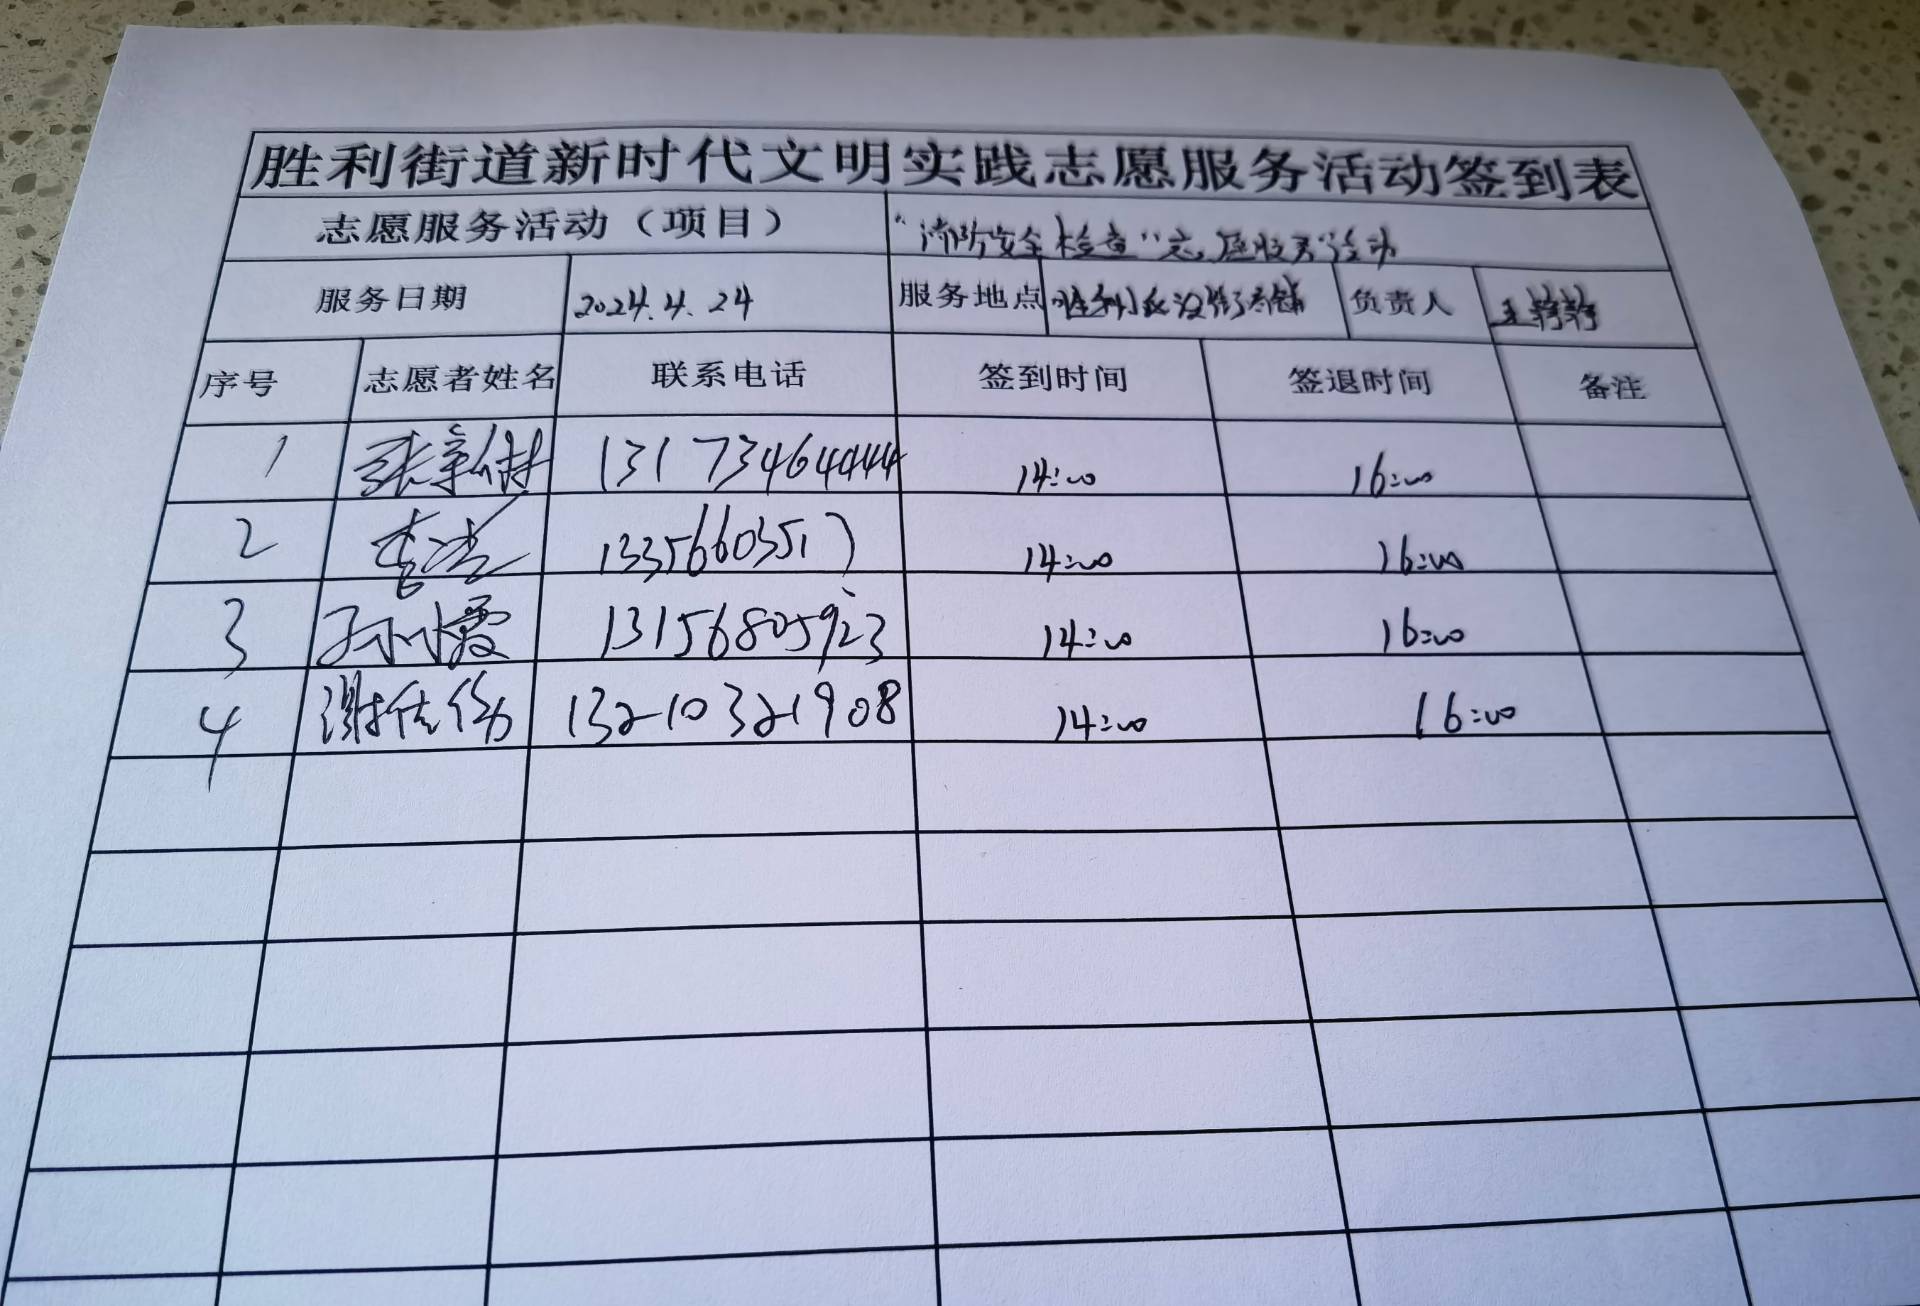 胜利街道新时代文明实践志愿服务活动签到表
志愿服务活动（项目） “消防安全检查”志愿服务活动
服务日期 2024.4.24 服务地点 胜利 负责人 王
序号 志愿者姓名 联系电话 签到时间 签退时间 备注
1 张 13173464444 14:00 16:00
2 李 13356603517 14:00 16:00
3 孙小霞 13156805923 14:00 16:00
4 谢 13210321908 14:00 16:00